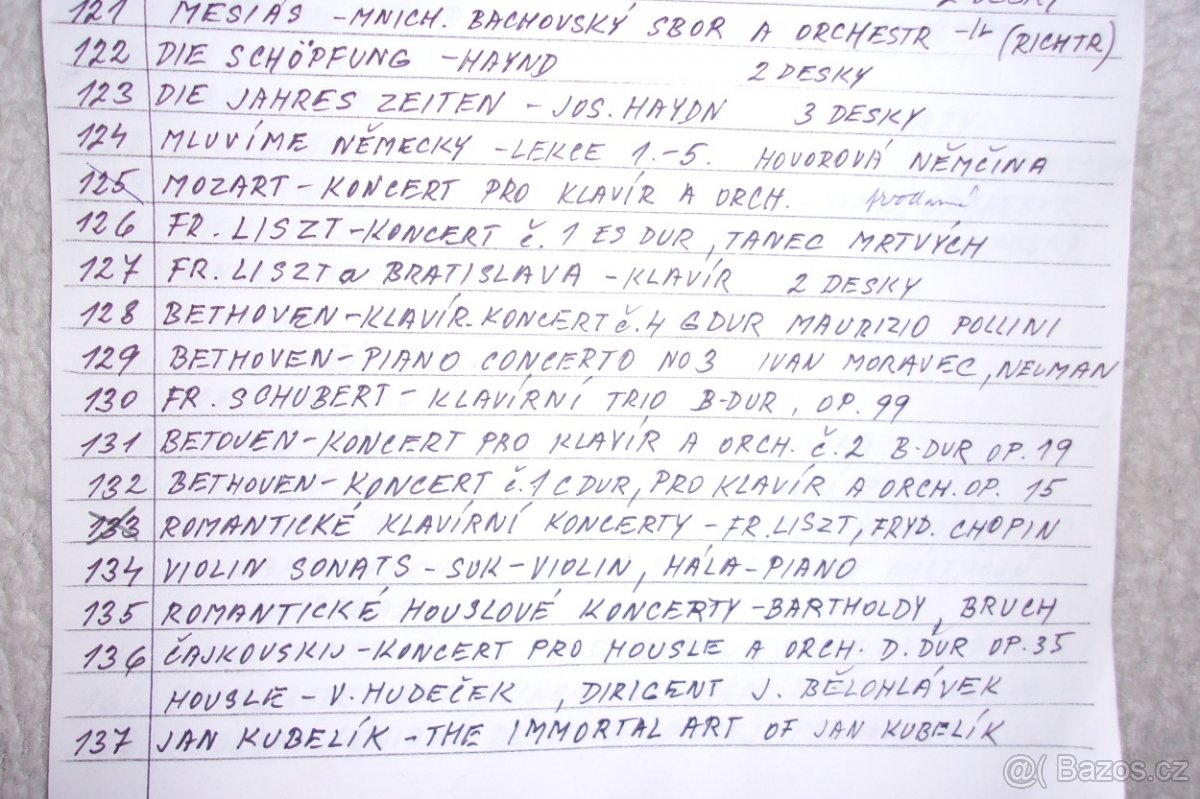 2 DESKY
121 MESIÁS - MNICH. BACHOVSKÝ SBOR A ORCHESTR - (RICHTR)
122 DIE SCHÖPFUNG - HAYND 2 DESKY
123 DIE JAHRES ZEITEN - JOS. HAYDN 3 DESKY
124 MLUVÍME NĚMECKY - LEKCE 1.-5. HOVOROVÁ NĚMČINA
125 MOZART - KONCERT PRO KLAVÍR A ORCH. prodané
126 FR. LISZT - KONCERT č. 1 ES DUR, TANEC MRTVÝCH
127 FR. LISZT a BRATISLAVA - KLAVÍR 2 DESKY
128 BETHOVEN - KLAVÍR. KONCERT č. 4 G DUR MAURIZIO POLLINI
129 BETHOVEN - PIANO CONCERTO NO 3 IVAN MORAVEC, NEUMAN
130 FR. SCHUBERT - KLAVÍRNÍ TRIO B-DUR, OP. 99
131 BETOVEN - KONCERT PRO KLAVÍR A ORCH. č. 2 B-DUR OP. 19
132 BETHOVEN - KONCERT č. 1 C DUR, PRO KLAVÍR A ORCH. OP. 15
133 ROMANTICKÉ KLAVÍRNÍ KONCERTY - FR. LISZT, FRYD. CHOPIN
134 VIOLIN SONATS - SUK - VIOLIN, HÁLA - PIANO
135 ROMANTICKÉ HOUSLOVÉ KONCERTY - BARTHOLDY, BRUCH
136 ČAJKOVSKIJ - KONCERT PRO HOUSLE A ORCH. D. DUR OP. 35
HOUSLE - V. HUDEČEK, DIRIGENT J. BĚLOHLÁVEK
137 JAN KUBELÍK - THE IMMORTAL ART OF JAN KUBELÍK
@( Bazos.cz